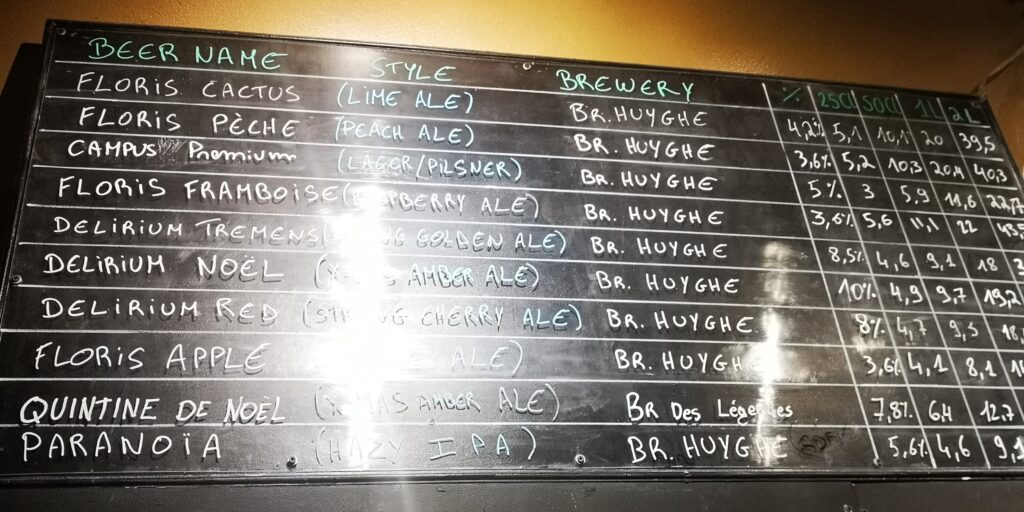 BEER NAME STYLE BREWERY % 25Cl 50Cl 1L 2L
FLORIS CACTUS (LIME ALE) BR. HUYGHE 4,2% 5,1 10,1 20 39,5
FLORIS PÈCHE (PEACH ALE) BR. HUYGHE 3,6% 5,2 10,3 20,4 40,3
CAMPUS Premium (LAGER/PILSNER) BR. HUYGHE 5% 3 5,9 11,6
FLORIS FRAMBOISE ALE) BR. HUYGHE 3,6% 5,6 11,1 22
DELIRIUM TREMENS GOLDEN ALE) BR. HUYGHE 8,5% 4,6 9,1 18
DELIRIUM NOËL AMBER ALE) BR. HUYGHE 10% 4,9 9,7 19,2
DELIRIUM RED CHERRY ALE) BR. HUYGHE 8% 4,7 9,3
FLORIS APPLE ALE) BR. HUYGHE 3,6% 4,1 8,1
QUINTINE DE NOËL (X-MAS AMBER ALE) BR Des Légendes 7,8% 12,7
PARANOÏA (HAZY IPA) BR. HUYGHE 5,6% 4,6